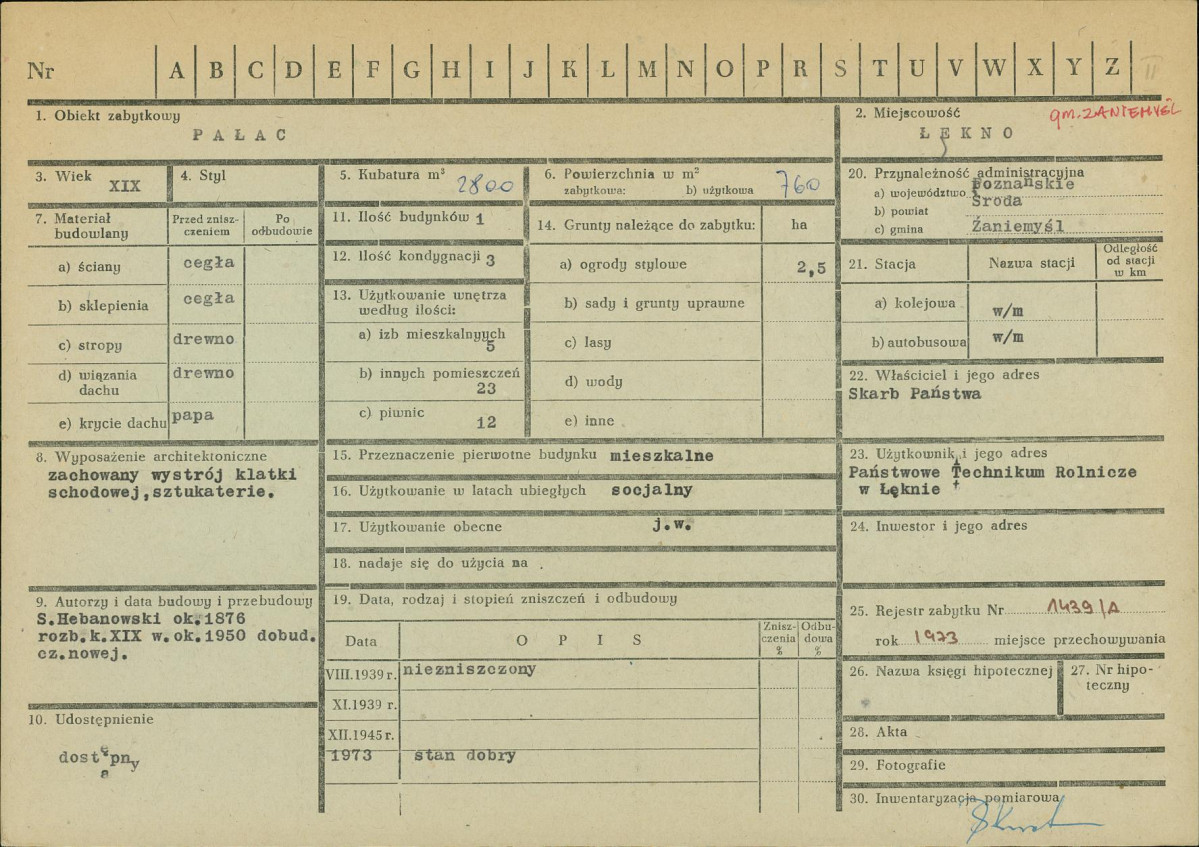 Nr A B C D E F G H I J K L M N O P R S T U V W X Y Z II
1. Obiekt zabytkowy
PAŁAC
2. Miejscowość
gm. ZANIEMYŚL
ŁĘKNO
3. Wiek XIX
4. Styl
5. Kubatura m³ 2800
6. Powierzchnia w m²
zabytkowa: b) użytkowa 760
7. Materiał budowlany
Przed zniszczeniem
Po odbudowie
a) ściany cegła
b) sklepienia cegła
c) stropy drewno
d) wiązania dachu drewno
e) krycie dachu papa
8. Wyposażenie architektoniczne
zachowany wystrój klatki
schodowej,sztukaterie.
9. Autorzy i data budowy i przebudowy
S.Hebanowski ok.1876
rozb.k.XIX w.ok.1950 dobud.
cz.nowej.
10. Udostępnienie
dostępny
11. Ilość budynków 1
12. Ilość kondygnacji 3
13. Użytkowanie wnętrza
według ilości:
a) izb mieszkalnyych
5
b) innych pomieszczeń
23
c) piwnic
12
14. Grunty należące do zabytku: ha
a) ogrody stylowe 2,5
b) sady i grunty uprawne
c) lasy
d) wody
e) inne
15. Przeznaczenie pierwotne budynku mieszkalne
16. Użytkowanie w latach ubiegłych socjalny
17. Użytkowanie obecne j.w.
18. nadaje się do użycia na .
19. Data, rodzaj i stopień zniszczeń i odbudowy
Data
OPIS
Zniszczenia %
Odbudowa %
VIII.1939 r. niezniszczony
XI.1939 r.
XII.1945 r.
1973 stan dobry
20. Przynależność administracyjna
a) województwo Poznańskie
b) powiat Środa
c) gmina Zaniemyśl
21. Stacja
Nazwa stacji
Odległość od stacji w km
a) kolejowa w/m
b) autobusowa w/m
22. Właściciel i jego adres
Skarb Państwa
23. Użytkownik i jego adres
Państwowe Technikum Rolnicze
w Łęknie
24. Inwestor i jego adres
25. Rejestr zabytku Nr 1439/A
rok 1973 miejsce przechowywania
26. Nazwa księgi hipotecznej
27. Nr hipoteczny
28. Akta
29. Fotografie
30. Inwentaryzacja pomiarowa